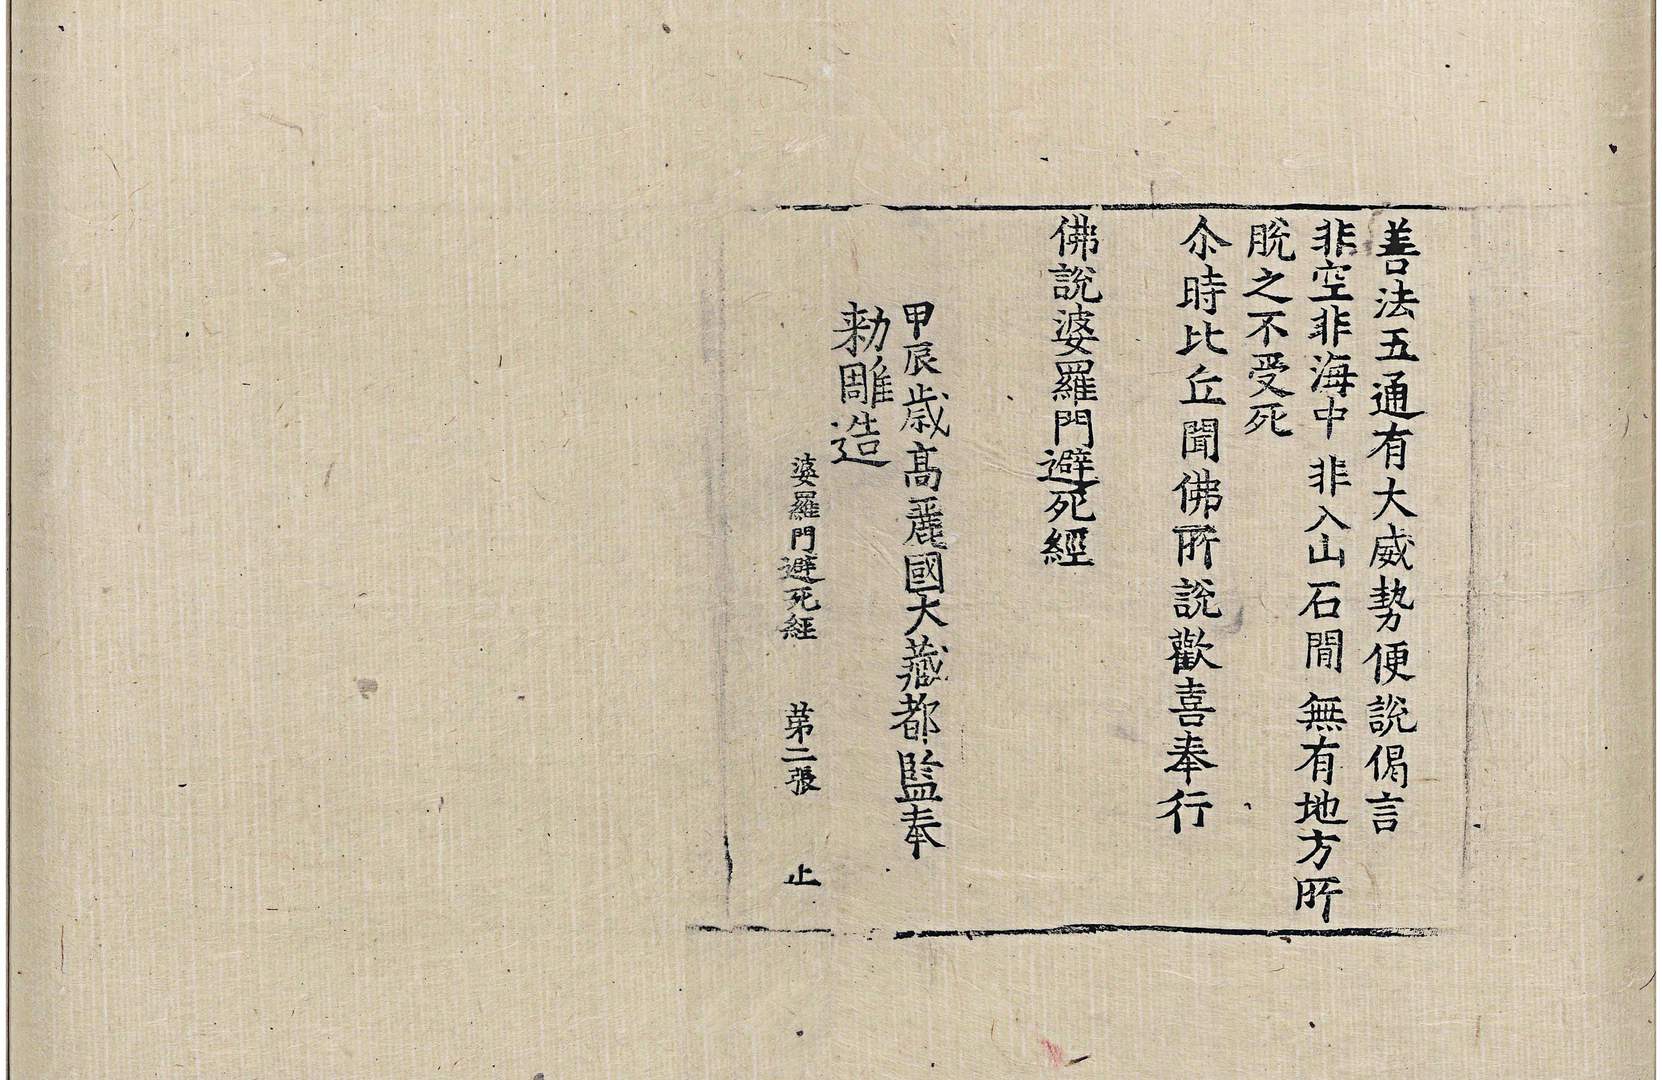 善法五通有大威勢便說偈言
非空非海中非入山石間無有地方所
脫之不受死
尒時比丘聞佛所說歡喜奉行
佛說婆羅門避死經
甲辰歲高麗國大藏都監奉
勅雕造
婆羅門避死經 第二張 止